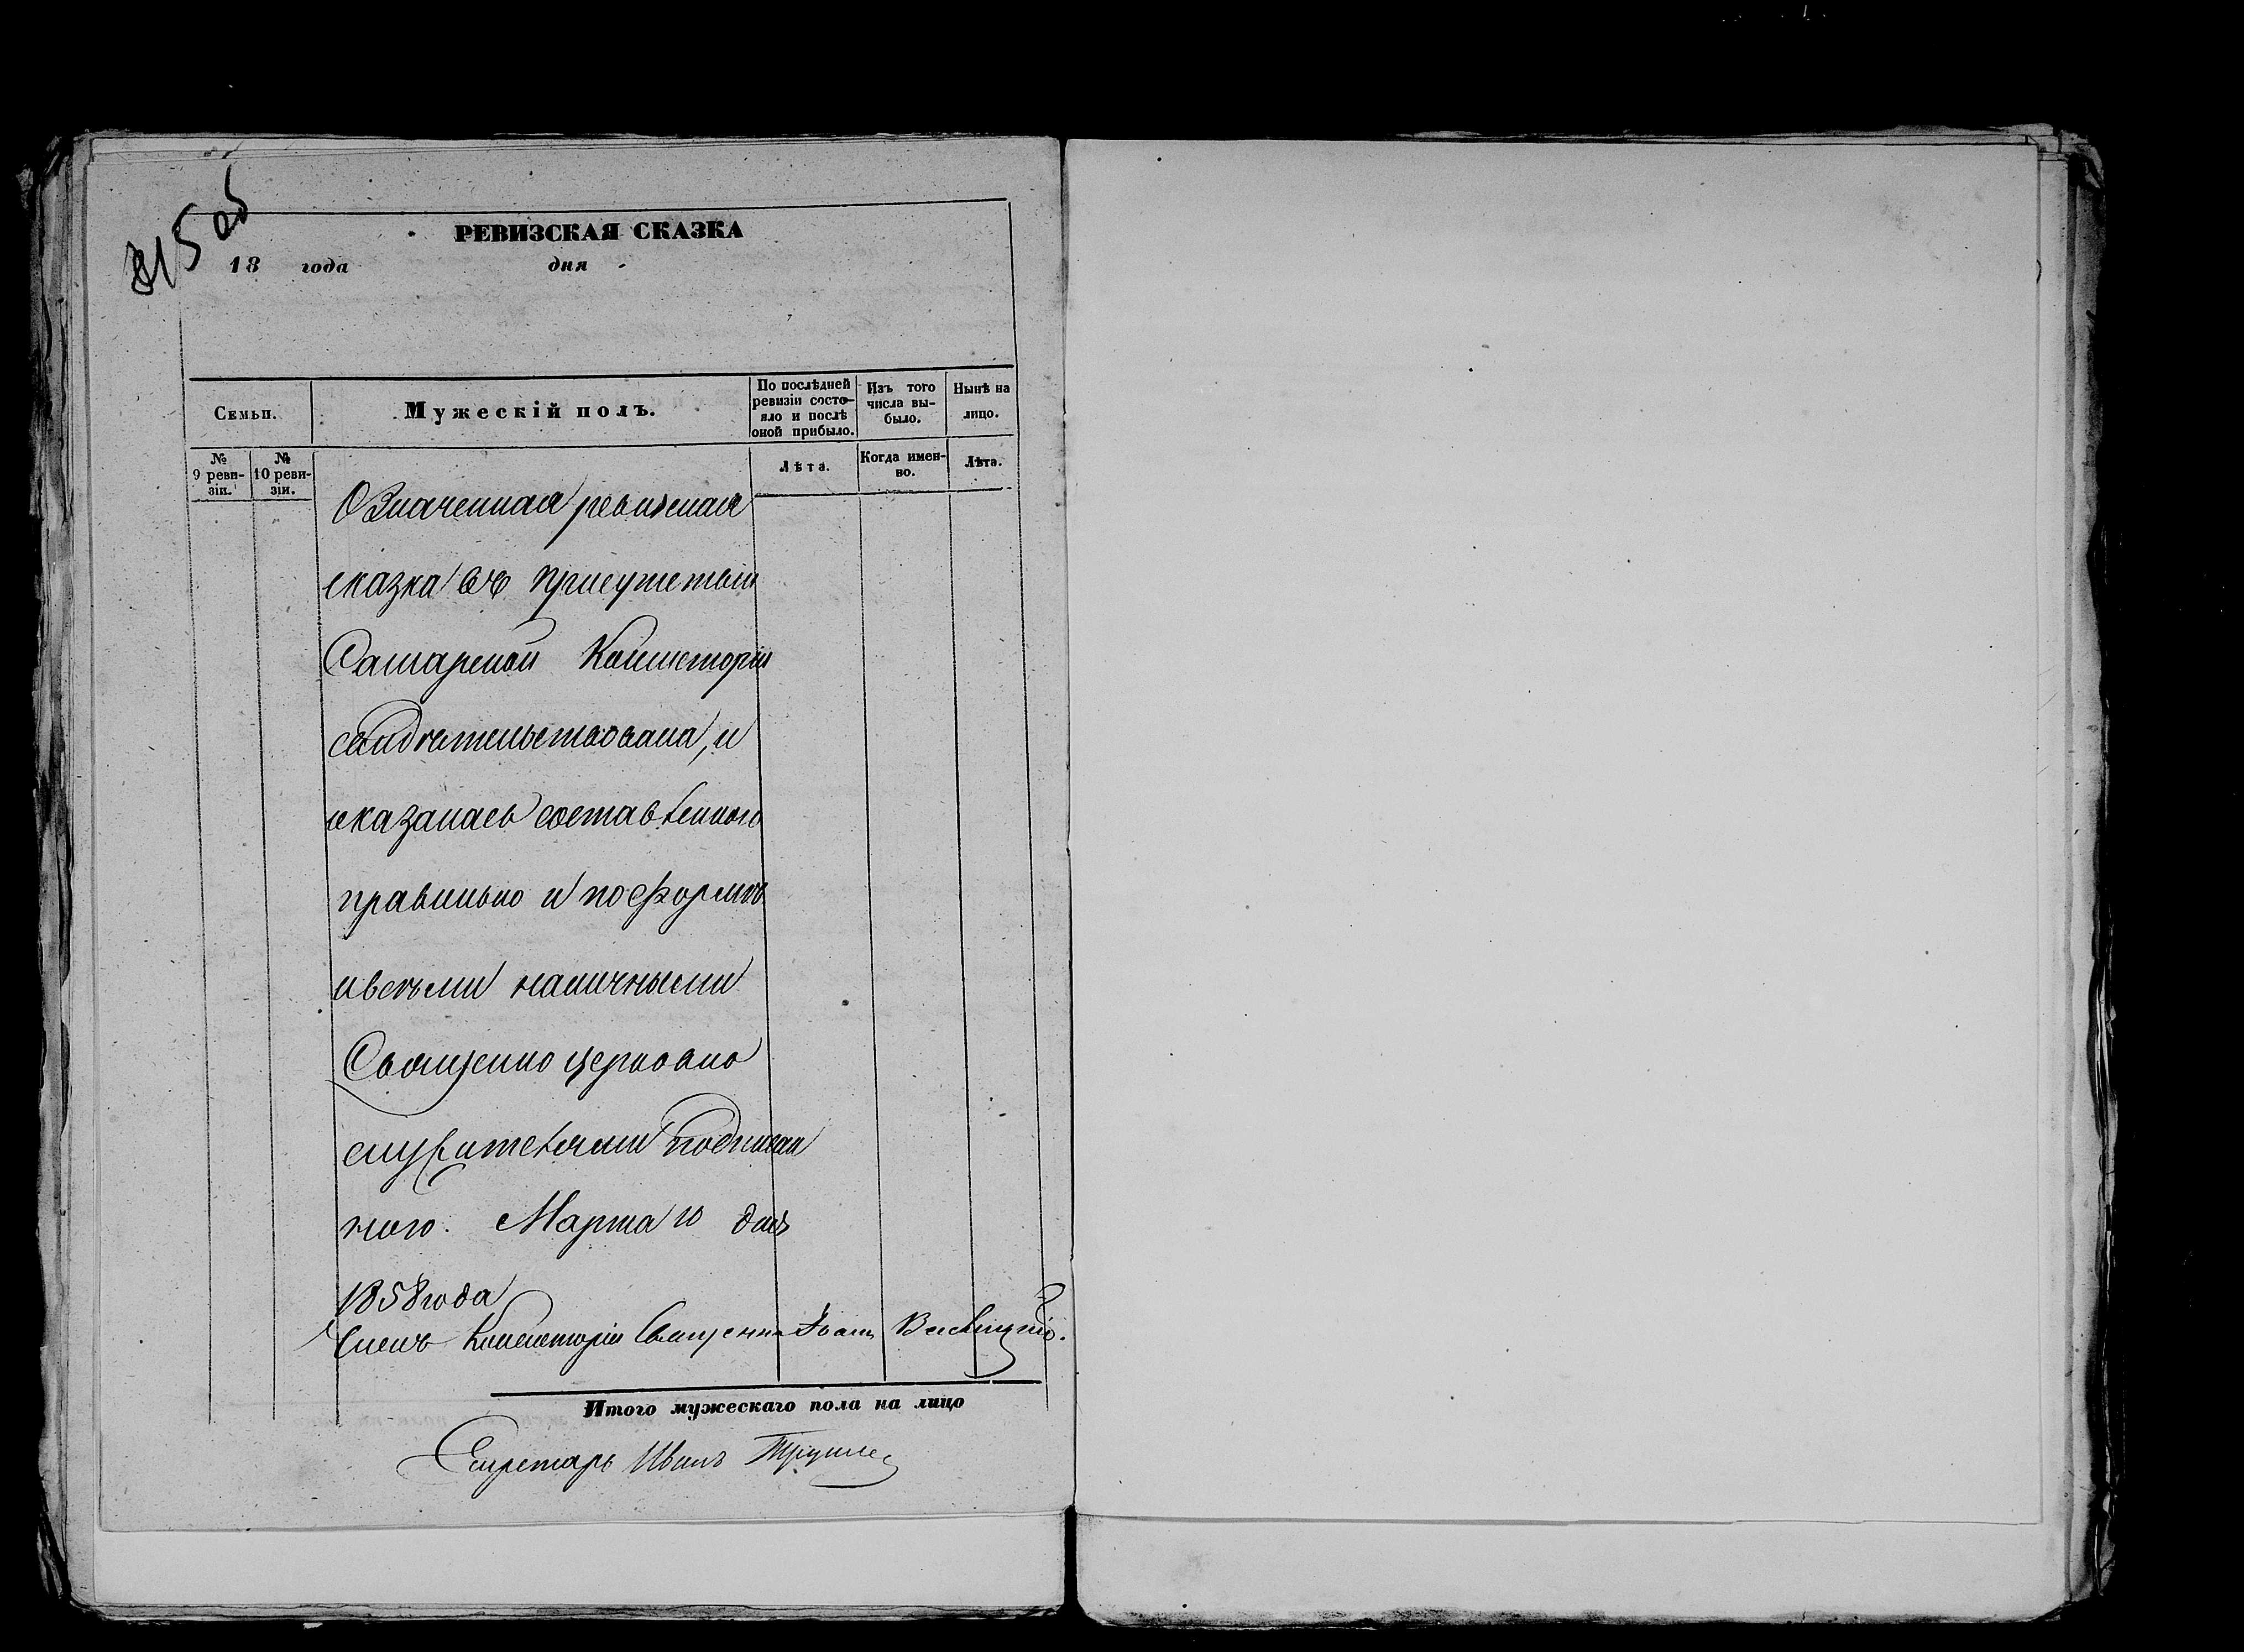 815 об
РЕВИЗСКАЯ СКАЗКА
18 года дня
Семьи.
Мужескій полъ.
По послѣдней ревизіи состо-
яло и послѣ
оной прибыло.
Изъ того
числа вы-
было.
Нынѣ на
лицо.
№
9 реви-
зіи.
№
10 реви-
зіи.
Лѣта.
Когда имен-
но.
Лѣта.
Означенная ревизская
сказка въ присутствіи
Самарской Консисторіи
свидѣтельствована, и
оказалась составленною
правильно и по формѣ
и всѣми наличными
Священно церковно
служителями подписан
ною. Марта 10 дня
1858 года
Членъ Консисторіи Священникъ Іоаннъ
Итого мужескаго пола на лицо
Секретарь Иванъ